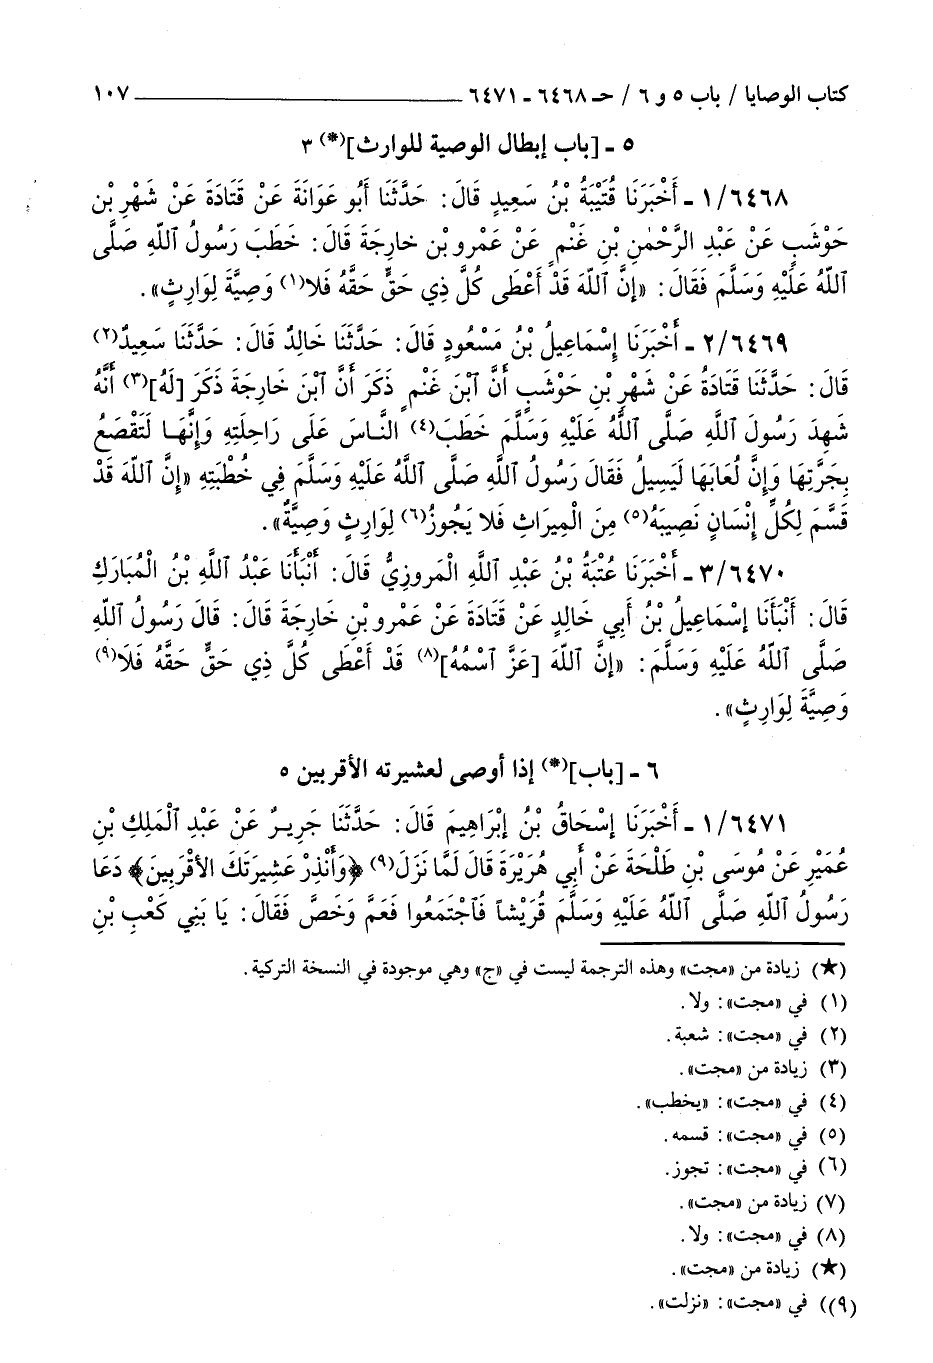 كتاب الوصايا / باب ٥ و ٦ / حـ ٦٤٦٨ - ٦٤٧١ ١٠٧
٥ - [باب إبطال الوصية للوارث](*) ٣
١/٦٤٦٨ - أَخْبَرَنَا قُتَيْبَةُ بْنُ سَعِيدٍ قَالَ: حَدَّثَنَا أَبُو عَوَانَةَ عَنْ قَتَادَةَ عَنْ شَهْرِ بْنِ
حَوْشَبٍ عَنْ عَبْدِ الرَّحْمٰنِ بْنِ غَنْمٍ عَنْ عَمْرِو بْنِ خَارِجَةَ قَالَ: خَطَبَ رَسُولُ اللَّهِ صَلَّى
ٱللَّهُ عَلَيْهِ وَسَلَّمَ فَقَالَ: «إِنَّ اللَّهَ قَدْ أَعْطَى كُلَّ ذِي حَقٍّ حَقَّهُ فَلَا(١) وَصِيَّةَ لِوَارِثٍ».
٢/٦٤٦٩ - أَخْبَرَنَا إِسْمَاعِيلُ بْنُ مَسْعُودٍ قَالَ: حَدَّثَنَا خَالِدٌ قَالَ: حَدَّثَنَا سَعِيدٌ(٢)
قَالَ: حَدَّثَنَا قَتَادَةُ عَنْ شَهْرِ بْنِ حَوْشَبٍ أَنَّ ٱبْنَ غَنْمٍ ذَكَرَ أَنَّ ٱبْنَ خَارِجَةَ ذَكَرَ [لَهُ](٣) أَنَّهُ
شَهِدَ رَسُولَ اللَّهِ صَلَّى ٱللَّهُ عَلَيْهِ وَسَلَّمَ خَطَبَ(٤) النَّاسَ عَلَى رَاحِلَتِهِ وَإِنَّهَا لَتَقْصَعُ
بِجَرَّتِهَا وَإِنَّ لُعَابَهَا لَيَسِيلُ فَقَالَ رَسُولُ اللَّهِ صَلَّى ٱللَّهُ عَلَيْهِ وَسَلَّمَ فِي خُطْبَتِهِ «إِنَّ اللَّهَ قَدْ
قَسَّمَ لِكُلِّ إِنْسَانٍ نَصِيبَهُ(٥) مِنَ الْمِيرَاثِ فَلَا يَجُوزُ(٦) لِوَارِثٍ وَصِيَّةٌ».
٣/٦٤٧٠ - أَخْبَرَنَا عُتْبَةُ بْنُ عَبْدِ اللَّهِ الْمَروزِيُّ قَالَ: أَنْبَأَنَا عَبْدُ اللَّهِ بْنُ الْمُبَارَكِ
قَالَ: أَنْبَأَنَا إِسْمَاعِيلُ بْنُ أَبِي خَالِدٍ عَنْ قَتَادَةَ عَنْ عَمْرِو بْنِ خَارِجَةَ قَالَ: قَالَ رَسُولُ ٱللَّهِ
صَلَّى ٱللَّهُ عَلَيْهِ وَسَلَّمَ: «إِنَّ ٱللَّهَ [عَزَّ ٱسْمُهُ](٨) قَدْ أَعْطَى كُلَّ ذِي حَقٍّ حَقَّهُ فَلَا(٩)
وَصِيَّةَ لِوَارِثٍ».
٦ - [باب](*) إذا أوصى لعشيرته الأقربين ٥
١/٦٤٧١ - أَخْبَرَنَا إِسْحَاقُ بْنُ إِبْرَاهِيمَ قَالَ: حَدَّثَنَا جَرِيرٌ عَنْ عَبْدِ الْمَلِكِ بْنِ
عُمَيْرٍ عَنْ مُوسَى بْنِ طَلْحَةَ عَنْ أَبِي هُرَيْرَةَ قَالَ لَمَّا نَزَلَ(٩) ﴿وَأَنْذِرْ عَشِيرَتَكَ الأَقْرَبِينَ﴾ دَعَا
رَسُولُ ٱللَّهِ صَلَّى ٱللَّهُ عَلَيْهِ وَسَلَّمَ قُرَيْشاً فَٱجْتَمَعُوا فَعَمَّ وَخَصَّ فَقَالَ: يَا بَنِي كَعْبِ بْنِ
(★) زيادة من «مجت» وهذه الترجمة ليست في «ج» وهي موجودة في النسخة التركية.
(١) في «مجت»: ولا.
(٢) في «مجت»: شعبة.
(٣) زيادة من «مجت».
(٤) في «مجت»: «يخطب».
(٥) في «مجت»: قسمه.
(٦) في «مجت»: تجوز.
(٧) زيادة من «مجت».
(٨) في «مجت»: ولا.
(★) زيادة من «مجت».
(٩)) في «مجت»: «نزلت».